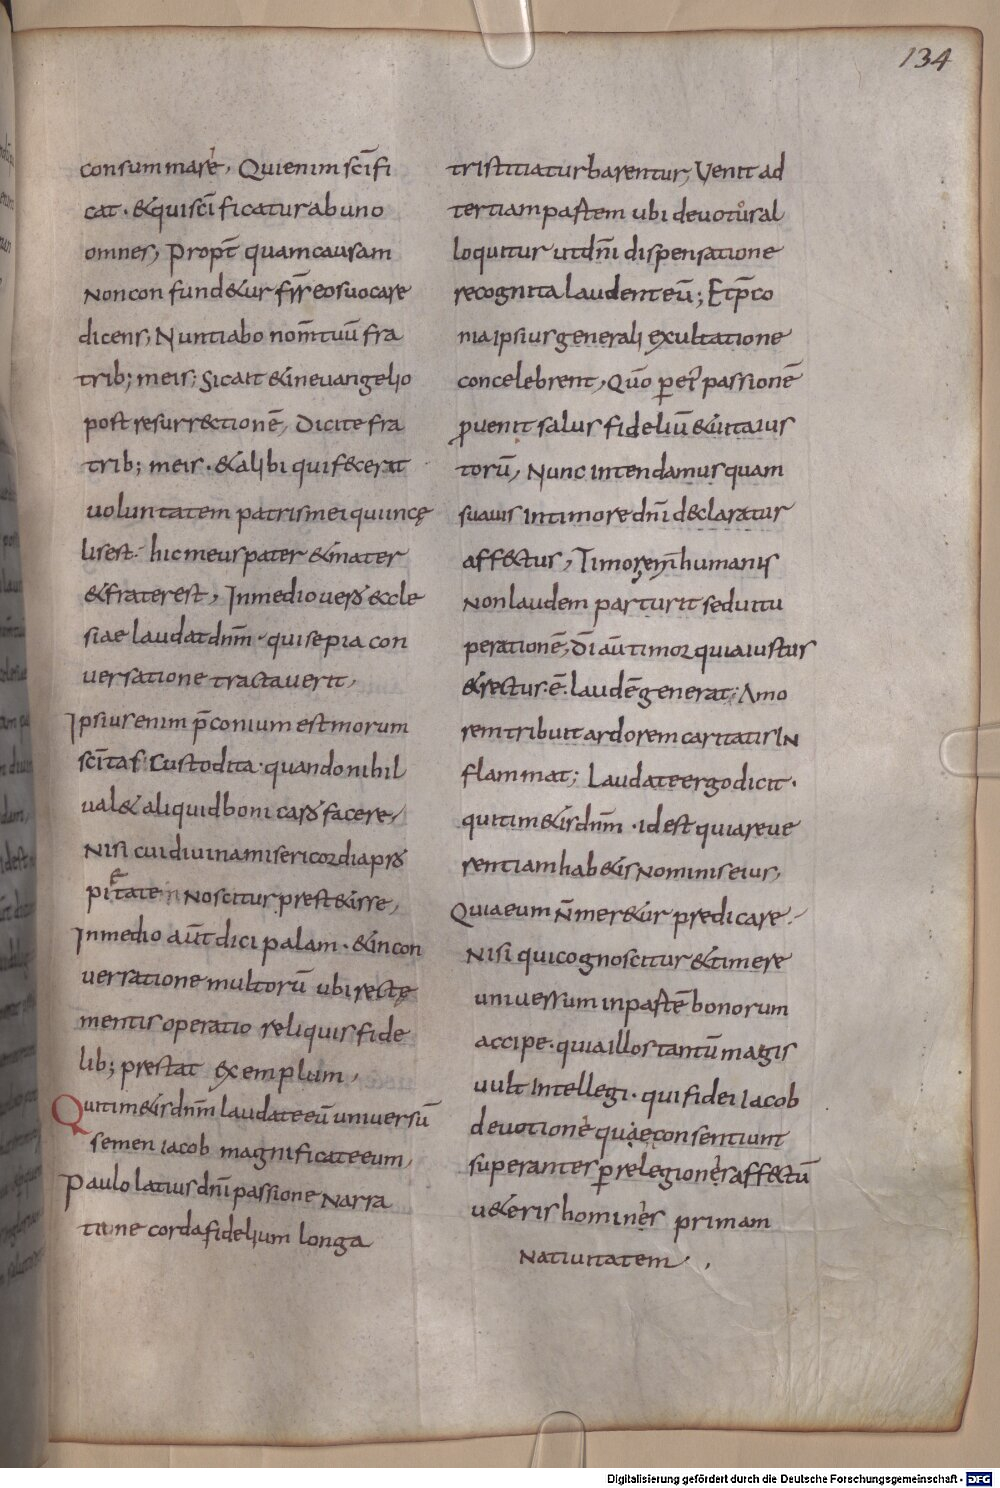 134
consummare, Quienim scīfi
cat · &quiscīficatur abuno
omnes, Propt̄ quamcausam
Nonconfund&ur fr̄r̄ eosuocare
dicens, Nuntiabo nom̄ tuū fra
trib; meis; Sicait &inevangelio
post resurr&ctionē, Dicite fra
trib; meis · &alibi quifecerit
uoluntatem patrismei quiincę
lisest · hicmeuspater &mater
&fraterest, Inmedio uerȣ eccle
siae laudat dn̄m · quisepia con
uersatione tractauerit,
Ipsiusenim p̄conium est morum
sc̄itas Custodita · quandonihil
ual& aliquidboni carȣ facere,
Nisi cuidiuinamisericordiaprȣ
pitate Noscitur prest&isse,
Inmedio aūt dici palam · &incon
uersatione multorū ubi rectę
mentis operatio reliquis fide
lib; prestat exemplum,
Quitim&isdn̄m laudateeū uniuersū
semen iacob magnificateeum,
Paulo latius dn̄i passione Narra
tione cordafidelium longa
tristitiaturbarentur, Venit ad
tertiampartem ubi deuotus al
loquitur utdn̄i dispensatione
recognita laudent eū; Etp̄co
niaipsiusgenerali exultatione
concelebrent, Quō per ei passionē
ꝑuenit salus fideliū &uitaius
torū, Nunc intendamusquam
suauis intimore dn̄i declaratur
aff&ctus, Timor eni humanis
Nonlaudem parturit seduitu
perationē, dī aūtimor quiaiustus
&rectus · ē · laudēgenerat; Amo
remtribuit ardorem caritatis IN
flammat; Laudateergo dicit ·
quitim&isdn̄m · idest quiareue
rentiamhab&is Nominiseius,
Quiaeum n̄ mer&ur predicare,
Nisi quicognoscitur &timere
uniuersum inpartē bonorum
accipe · quiaillostantū magis
uult intellegi · quifidei iacob
deuotione quae consentiunt
superantes ꝑrelegiones affectū
u&eris hominis primam
Natiuitatem .
Digitalisierung gefördert durch die Deutsche Forschungsgemeinschaft - DFG